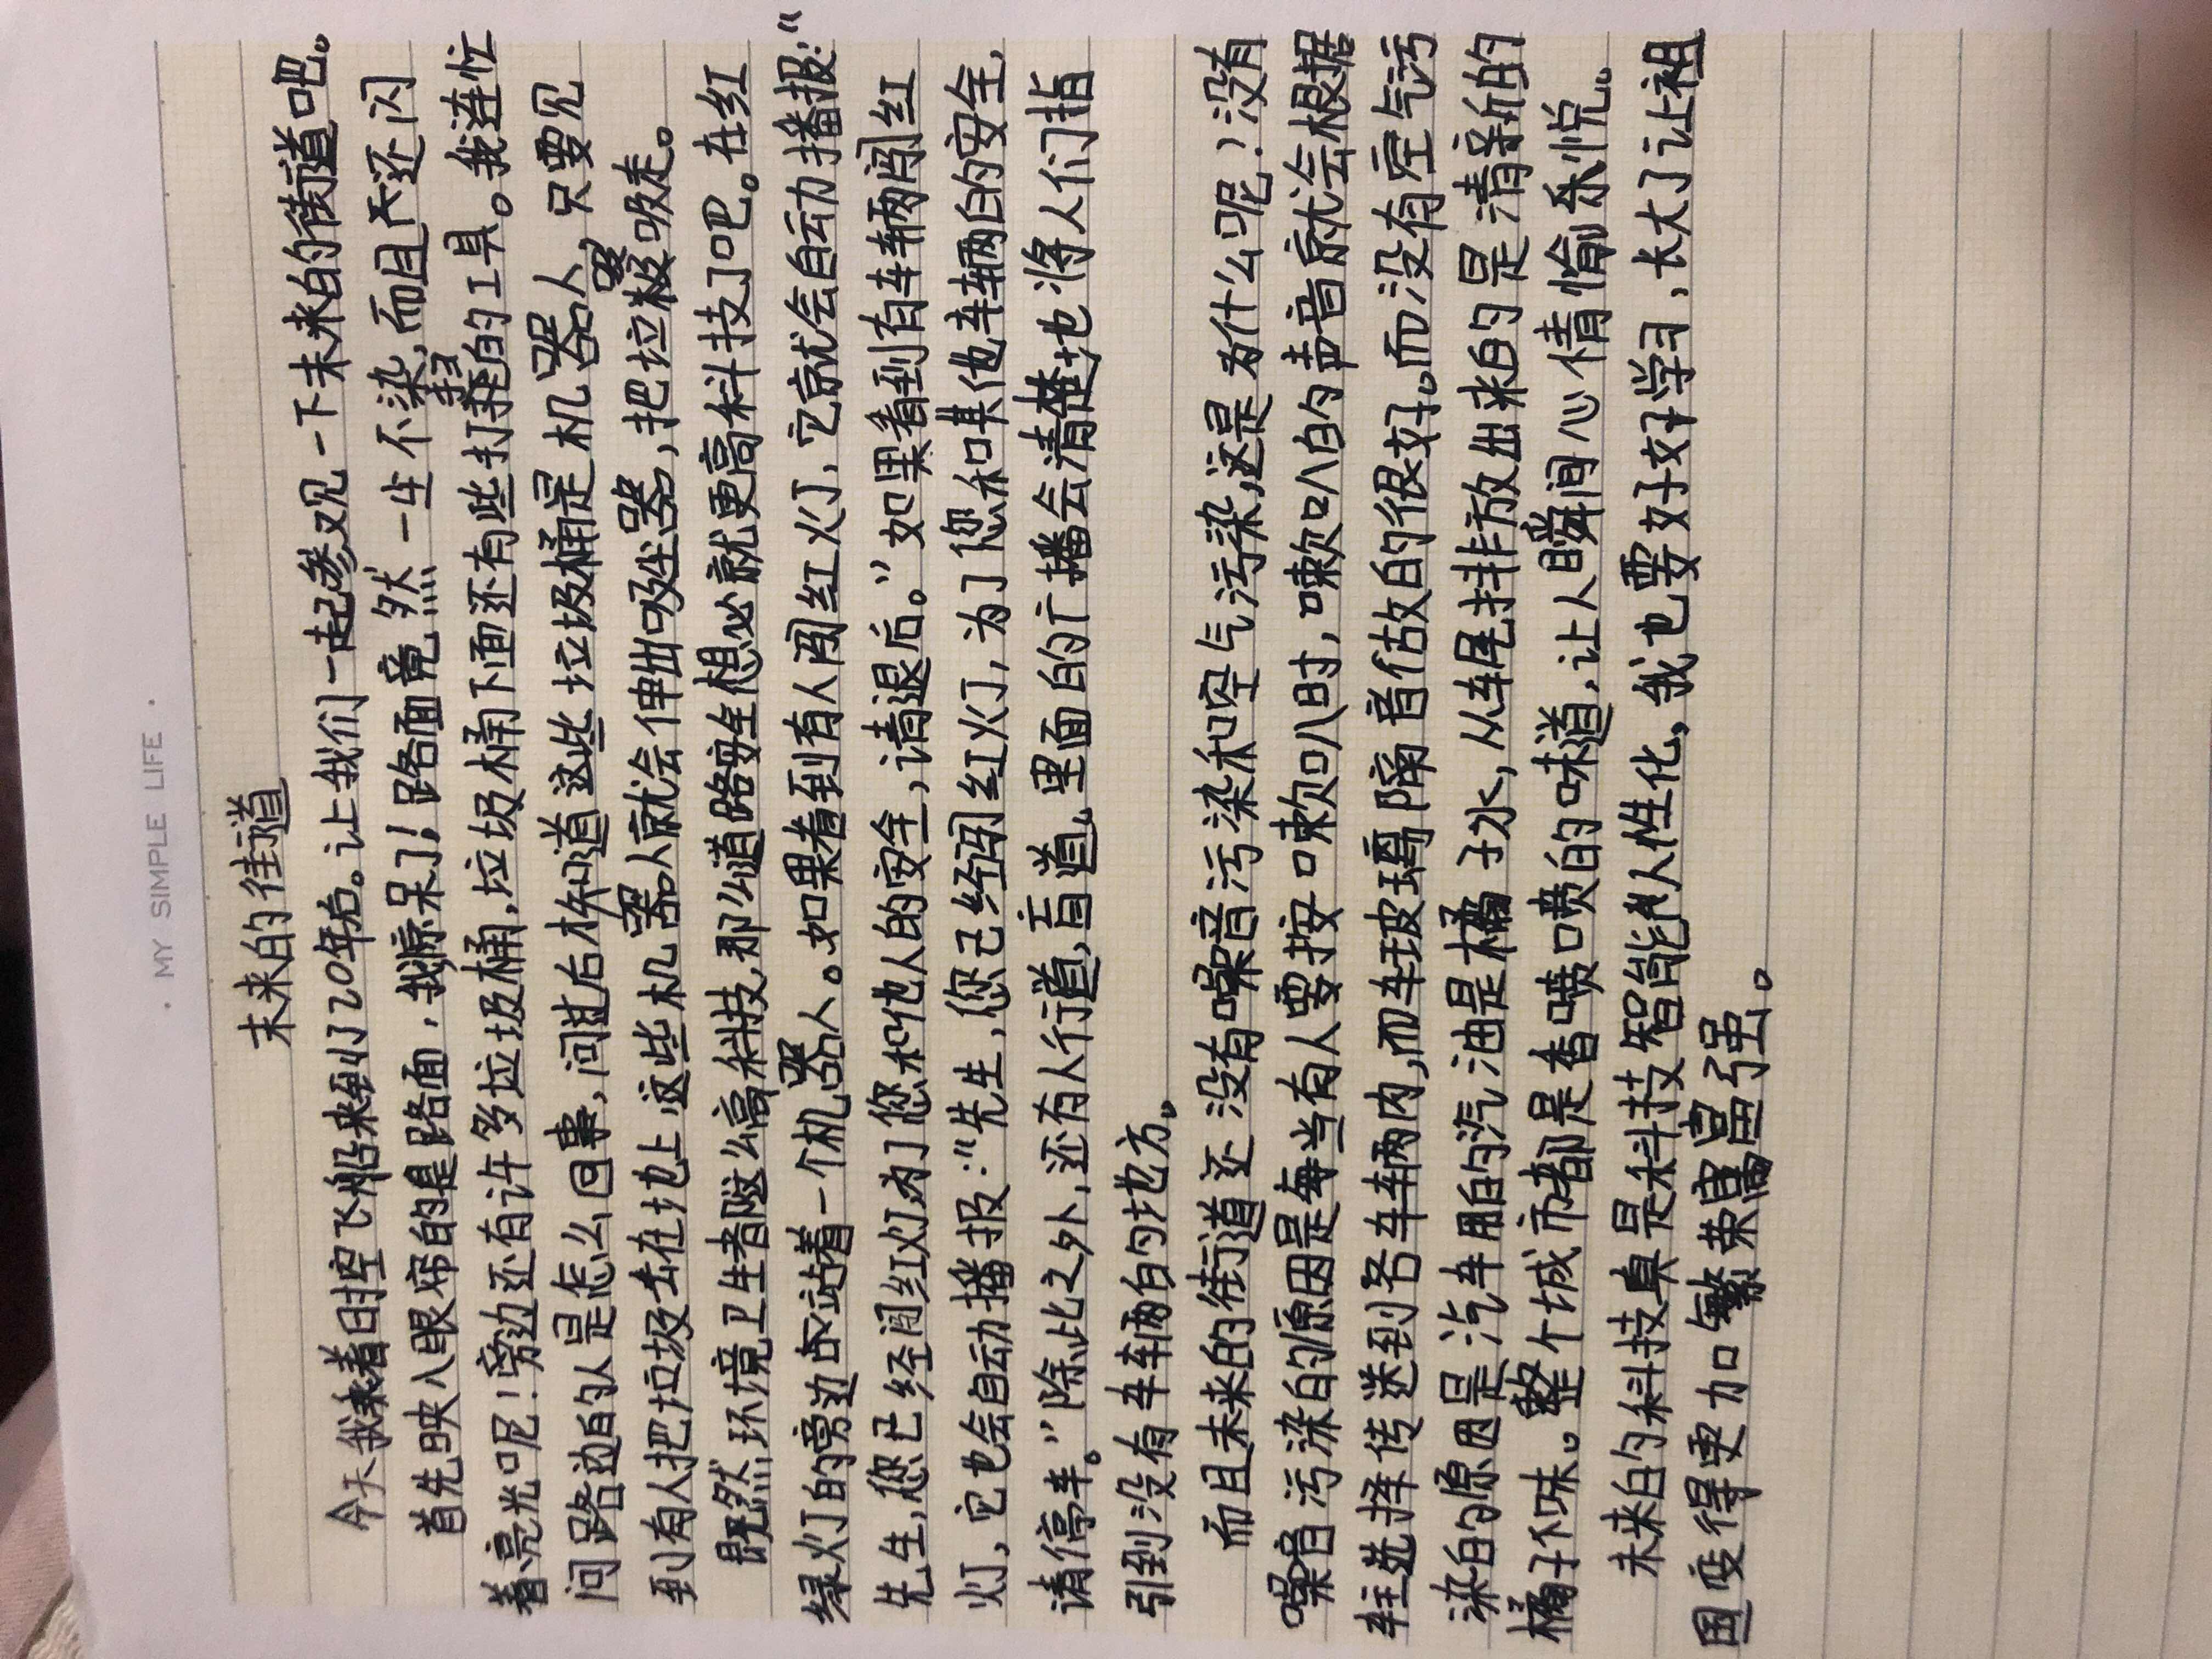 · MY SIMPLE LIFE ·
未来的街道
今天我乘着时空飞船来到了20年后。让我们一起参观一下未来的街道吧。
首先映入眼帘的是路面，我惊呆了！路面竟然一尘不染，而且还闪
着亮光呢！旁边还有许多垃圾桶，垃圾桶下面还有些打扫的工具。我连忙
问路边的人是怎么回事，问过后才知道这些垃圾桶是机器人，只要见
到有人把垃圾丢在地上这些机器人就会伸出吸尘器，把垃圾吸走。
既然环境卫生都这么高科技，那么道路安全想必就更高科技了吧。在红
绿灯的旁边都站着一个机器人。如果看到有人闯红灯，它就会自动播报：“
先生，您已经闯红灯为了您和他人的安全，请退后。”如果看到有车辆闯红
灯，它也会自动播报：“先生，您已经闯红灯，为了您和其他车辆的安全，
请停车。”除此之外，还有人行道，盲道，里面的广播会清楚地将人们指
引到没有车辆的地方。
而且未来的街道还没有噪音污染和空气污染，这是为什么呢？没有
噪音污染的原因是每当有人要按嗽叭时，嗽叭的声音就会根据
车主选择传送到各车辆内，而车玻璃隔音估故的很好。而没有空气污
染的原因是汽车用的汽油是橘子水，从车尾排放出来的是清新的
橘子味。整个城市都是香喷喷的味道，让人瞬间心情愉悦。
未来的科技真是科技智能人性化，我也要好好学习，长大了让祖
国变得更加繁荣富强。